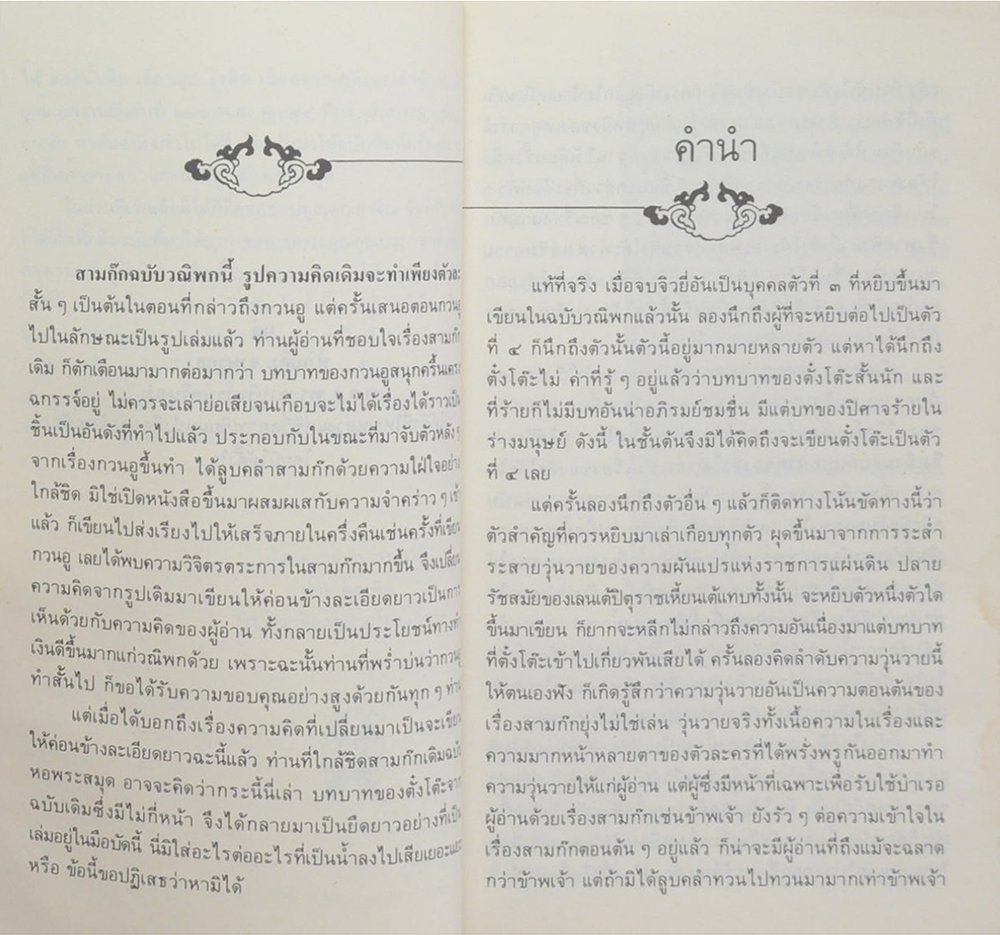 สามก๊กฉบับวณิพกนี้ รูปความคิดเดิมจะทำเพียงตัวละ
สั้น ๆ เป็นต้นในตอนที่กล่าวถึงกวนอู แต่ครั้นเสนอตอนกวนอู
ไปในลักษณะเป็นรูปเล่มแล้ว ท่านผู้อ่านที่ชอบใจเรื่องสามก๊ก
เดิม ก็ตักเตือนมามากต่อมากว่า บทบาทของกวนอูสนุกครื้นเครง
ฉกรรจ์อยู่ ไม่ควรจะเล่าย่อเสียจนเกือบจะไม่ได้เรื่องได้ราวเป็น
ชิ้นเป็นอันดังที่ทำไปแล้ว ประกอบกับในขณะที่มาจับตัวหลัง ๆ
จากเรื่องกวนอูขึ้นทำ ได้ลูบคลำสามก๊กด้วยความใฝ่ใจอย่าง
ใกล้ชิด มิใช่เปิดหนังสือขึ้นมาผสมผเสกับความจำคร่าว ๆ
แล้ว ก็เขียนไปส่งเรียงไปให้เสร็จภายในครึ่งคืนเช่นครั้งที่เขียน
กวนอู เลยได้พบความวิจิตรตระการในสามก๊กมากขึ้น จึงเปลี่ยน
ความคิดจากรูปเดิมมาเขียนให้ค่อนข้างละเอียดยาวเป็นการ
เห็นด้วยกับความคิดของผู้อ่าน ทั้งกลายเป็นประโยชน์ทางทำ
เงินดีขึ้นมากแก่วณิพกด้วย เพราะฉะนั้นท่านที่พร่ำบ่นว่ากวนอู
ทำสั้นไป ก็ขอได้รับความขอบคุณอย่างสูงด้วยกันทุก ๆ ท่าน
แต่เมื่อได้บอกถึงเรื่องความคิดที่เปลี่ยนมาเป็นจะเขียน
ให้ค่อนข้างละเอียดยาวฉะนี้แล้ว ท่านที่ใกล้ชิดสามก๊กเดิมฉบับ
หอพระสมุด อาจจะคิดว่ากระนี้นี่เล่า บทบาทของตั๋งโต๊ะจาก
ฉบับเดิมซึ่งมีไม่กี่หน้า จึงได้กลายมาเป็นยืดยาวอย่างที่เป็น
เล่มอยู่ในมือบัดนี้ นี่มิใส่อะไรต่ออะไรที่เป็นน้ำลงไปเสียเยอะแยะ
หรือ ข้อนี้ขอปฏิเสธว่าหามิได้
คำนำ
แท้ที่จริง เมื่อจบจิวยี่อันเป็นบุคคลตัวที่ ๓ ที่หยิบขึ้นมา
เขียนในฉบับวณิพกแล้วนั้น ลองนึกถึงผู้ที่จะหยิบต่อไปเป็นตัว
ที่ ๔ ก็นึกถึงตัวนั้นตัวนี้อยู่มากมายหลายตัว แต่หาได้นึกถึง
ตั๋งโต๊ะไม่ ค่าที่รู้ ๆ อยู่แล้วว่าบทบาทของตั๋งโต๊ะสั้นนัก และ
ที่ร้ายก็ไม่มีบทอันน่าอภิรมย์ชมชื่น มีแต่บทของปิศาจร้ายใน
ร่างมนุษย์ ดังนี้ ในชั้นต้นจึงมิได้คิดถึงจะเขียนตั๋งโต๊ะเป็นตัว
ที่ ๔ เลย
แต่ครั้นลองนึกถึงตัวอื่น ๆ แล้วก็ติดทางโน้นขัดทางนี้ว่า
ตัวสำคัญที่ควรหยิบมาเล่าเกือบทุกตัว ผุดขึ้นมาจากการระส่ำ
ระสายวุ่นวายของความผันแปรแห่งราชการแผ่นดิน ปลาย
รัชสมัยของเลนเต้ปิตุราชเหี้ยนเต้แทบทั้งนั้น จะหยิบตัวหนึ่งตัวใด
ขึ้นมาเขียน ก็ยากจะหลีกไม่กล่าวถึงความอันเนื่องมาแต่บทบาท
ที่ตั๋งโต๊ะเข้าไปเกี่ยวพันเสียได้ ครั้นลองคิดลำดับความวุ่นวายนี้
ให้ตนเองฟัง ก็เกิดรู้สึกว่าความวุ่นวายอันเป็นความตอนต้นของ
เรื่องสามก๊กยุ่งไม่ใช่เล่น วุ่นวายจริงทั้งเนื้อความในเรื่องและ
ความมากหน้าหลายตาของตัวละครที่ได้พรั่งพรูกันออกมาทำ
ความวุ่นวายให้แก่ผู้อ่าน แต่ผู้ซึ่งมีหน้าที่เฉพาะเพื่อรับใช้บำเรอ
ผู้อ่านด้วยเรื่องสามก๊กเช่นข้าพเจ้า ยังรัว ๆ ต่อความเข้าใจใน
เรื่องสามก๊กตอนต้น ๆ อยู่แล้ว ก็น่าจะมีผู้อ่านที่ถึงแม้จะฉลาด
กว่าข้าพเจ้า แต่ถ้ามิได้ลูบคลำทวนไปทวนมามากเท่าข้าพเจ้า